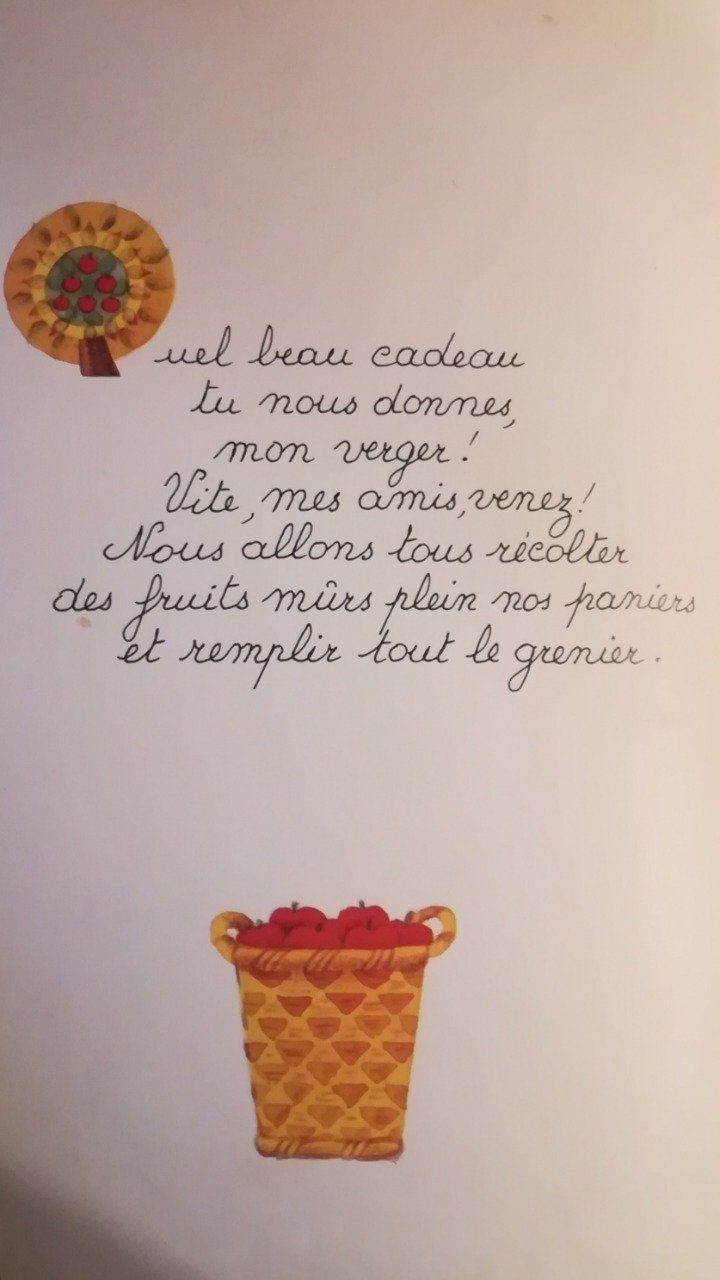 Quel beau cadeau
tu nous donnes,
mon verger !
Vite, mes amis, venez !
Nous allons tous récolter
des fruits mûrs plein nos paniers
et remplir tout le grenier.